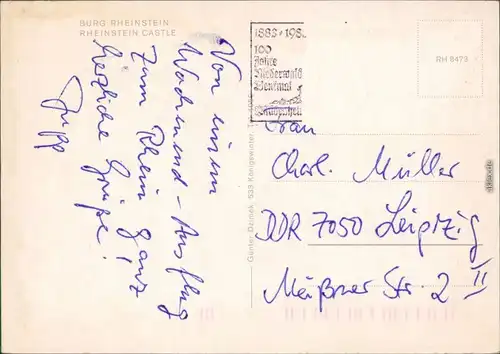 BURG RHEINSTEIN
RHEINSTEIN CASTLE
Von einem
Wochenend-Ausflug
zum Rhein ganz
herzliche Grüße!
1883·198
100
Jahre
Niederwald
Denkmal
RH 8473
Günter Dzimek, 533 Königswinter,
Frau
Charl. Müller
DDR 7050 Leipzig
Meißner Str. 2 II